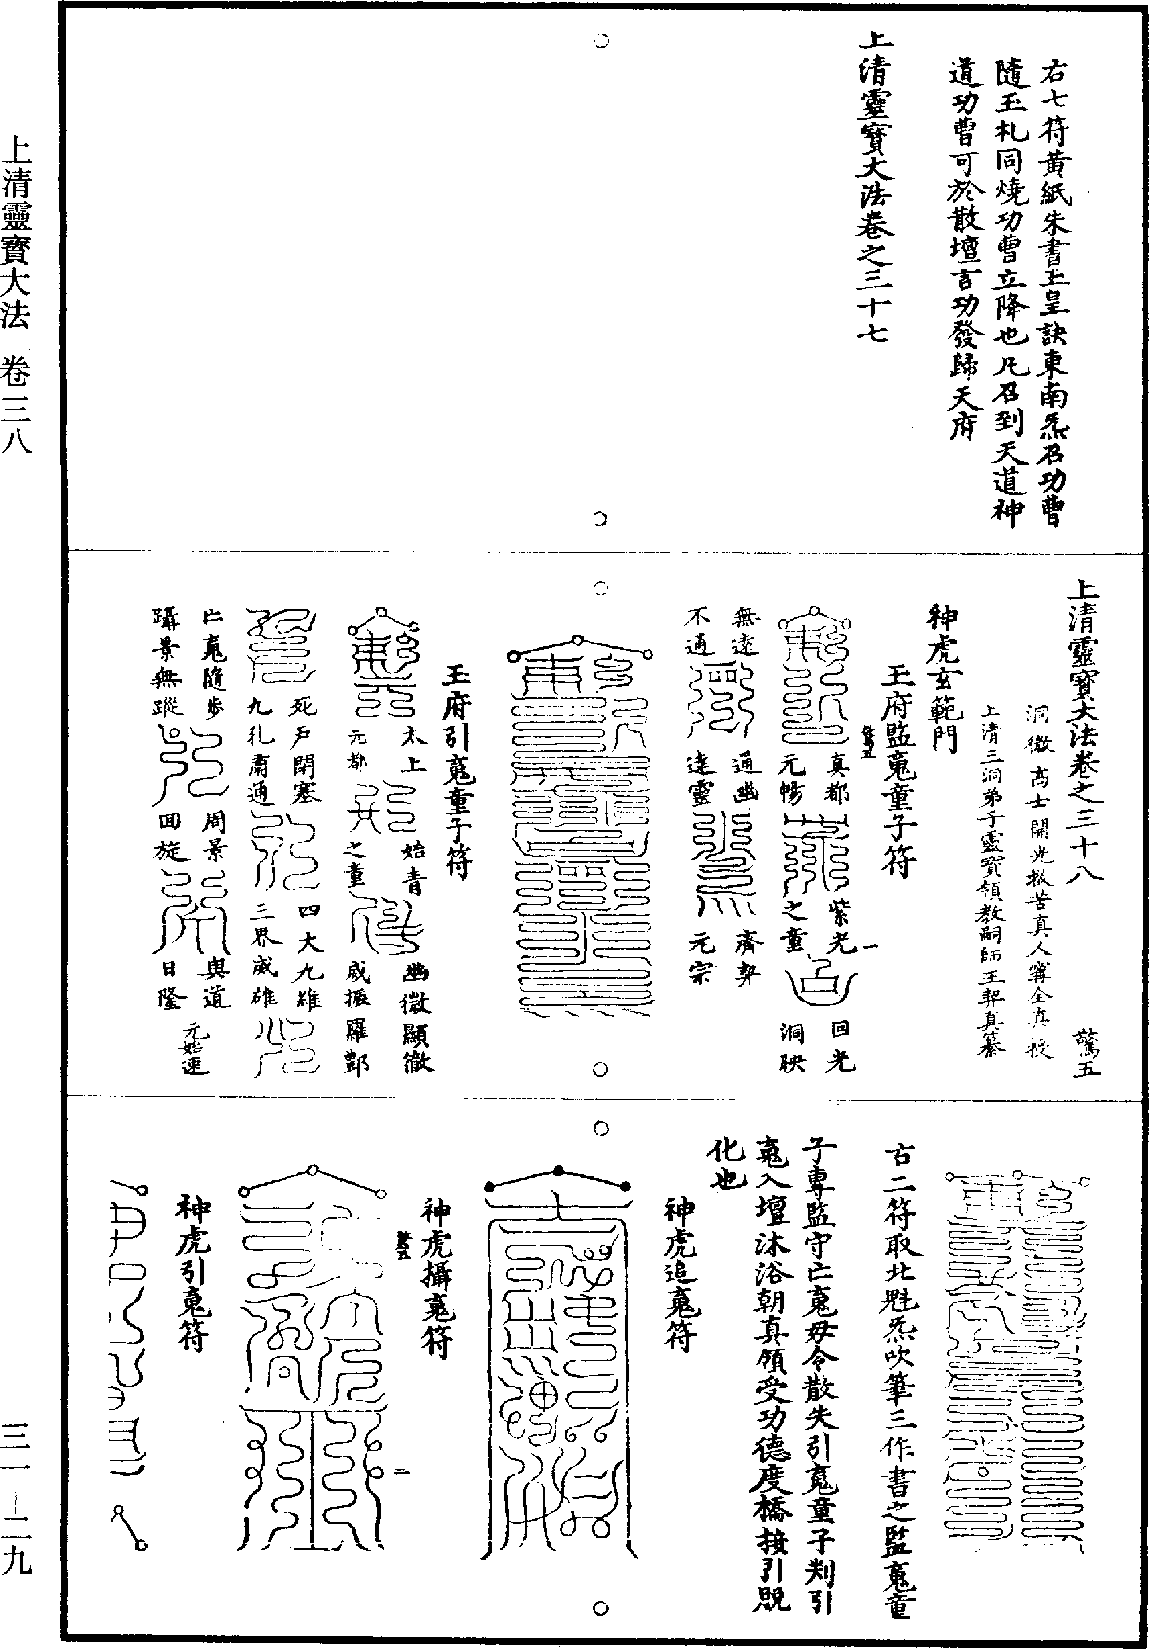 右七符黃紙朱書玉皇訣東南炁召功曹
隨玉札同燒功曹立降也凡召到天道神
道功曹可於散壇言功發歸天府
上清靈寶大法卷之三十七
上清靈寶大法卷之三十八
驚五
洞微高士開光救苦真人甯全真授
上清三洞弟子靈寶領教嗣師王契真纂
神虎玄範門
玉府監䰟童子符
驚五
一
真都
元暢
紫光
之童
回光
洞映
無遠
不通
通幽
達靈
齊契
元宗
玉府引䰟童子符
太上
元都
始青
之童
幽微顯徹
威振羅酆
死戶閉塞
九札肅通
四大九雄
三界威雄
亡䰟隨步
躡景無蹤
周景
回旋
與道
日隆
元始運
右二符取北魁炁吹筆三作書之監䰟童
子專監守亡䰟毋令散失引䰟童子判引
䰟入壇沐浴朝真領受功德度橋接引貺
化也
神虎追䰟符
神虎攝䰟符
驚五
二
神虎引䰟符
上清靈寶大法 卷三八
三一－二九